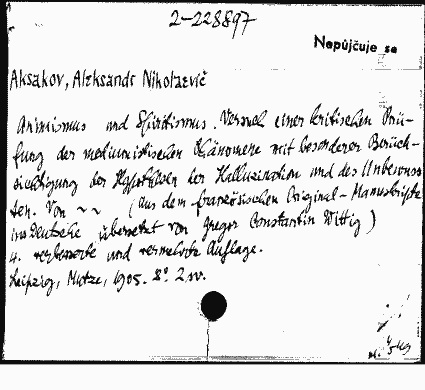 2-228897
Nepůjčuje se
Aksakov, Aleksandr Nikolaevič
Animismus und Spiritismus. Versuch einer kritischen Prü-
fung der mediumistischen Phänomene mit besonderer Berück-
sichtigung der Hypothesen der Halluzination und des Unbewuss-
ten. Von ~ ~ (Aus dem französischen Original-Manuskripte
ins Deutsche übersetzt von Gregor Constantin Wittig)
4. verbesserte und vermehrte Auflage.
Leipzig, Mutze, 1905. 8° 2 sv.